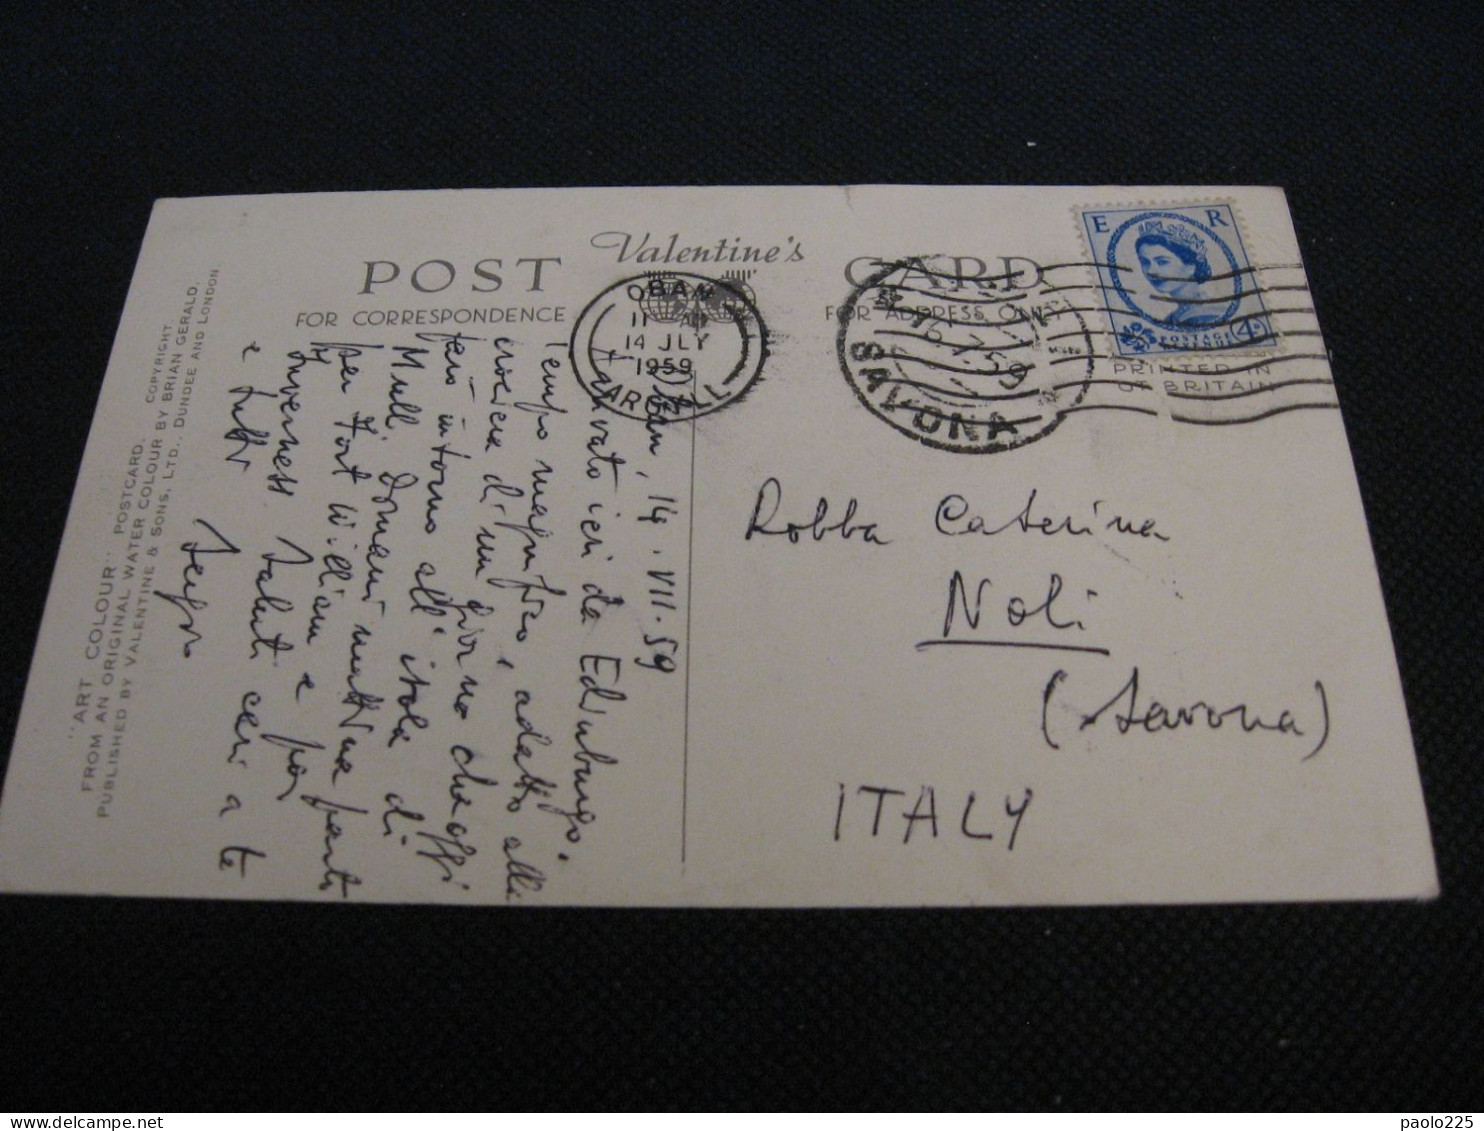 Valentine's
POST CARD
FOR CORRESPONDENCE
FOR ADDRESS ONLY
OBAN
11
14 JLY
1959
ARGYLL
SAVONA
E R
4D
PRINTED IN
GT BRITAIN
Oban, 14.VII.59
Arrivato ieri da Edimburgo.
Tempo magnifico, adatto alla
crociera di un giorno che oggi
farò intorno all'isola di
Mull. Domani mattina parto
per Fort William e poi
Inverness. Saluti cari a te
e tutti
Robba Caterina
Noli
(Savona)
ITALY
"ART COLOUR" POSTCARD. COPYRIGHT
FROM AN ORIGINAL WATER COLOUR BY BRIAN GERALD.
PUBLISHED BY VALENTINE & SONS, LTD., DUNDEE AND LONDON
paolo225